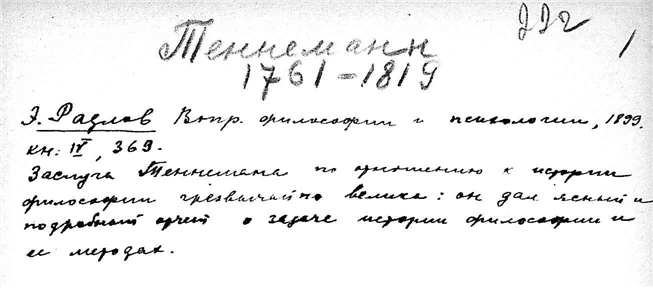 Теннеманн
1761-1819
1
Э. Радлов Вопр. философии и психологии, 1899.
кн. IV, 369.
Заслуга Теннемана по отношению к истории
философии чрезвычайно велика: он дал ясный и
подробный отчет о задаче истории философии и
ее методах.